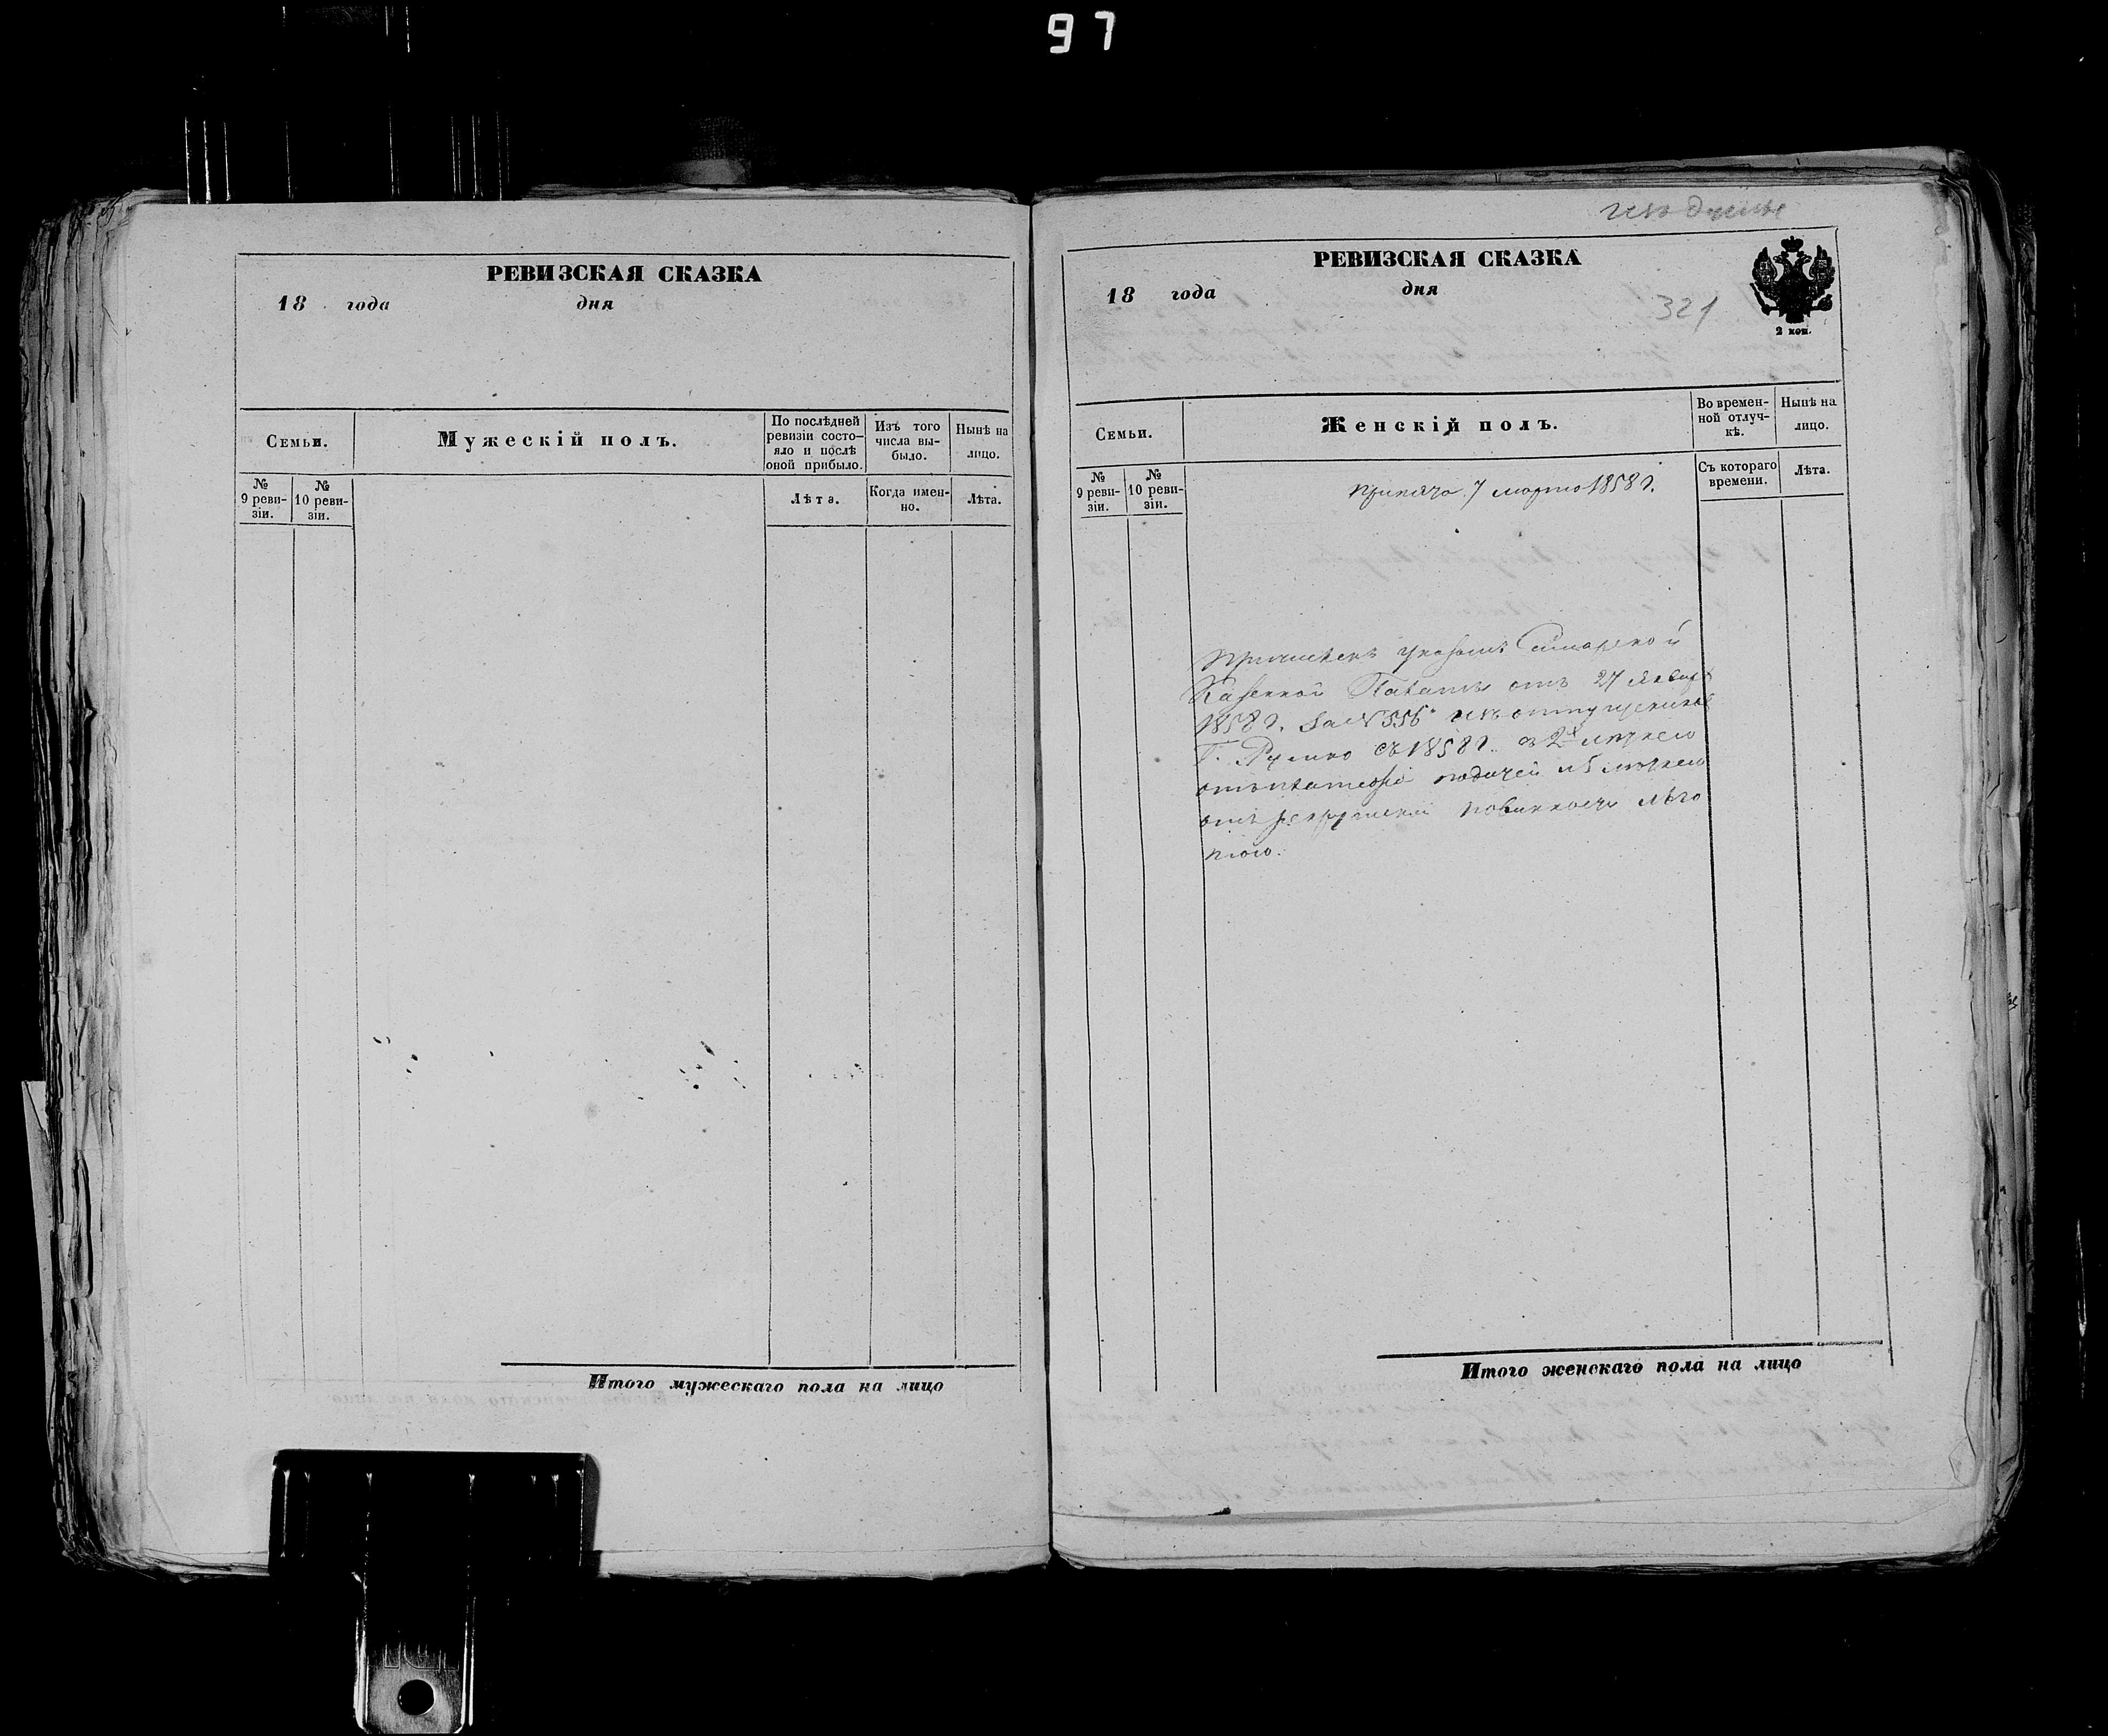 97
РЕВИЗСКАЯ СКАЗКА
18 года дня
Семьи.
Мужескій полъ.
По послѣдней ревизіи состояло и послѣ оной прибыло.
Изъ того числа выбыло.
Нынѣ на лицо.
№ 9 ревизіи.
№ 10 ревизіи.
Лѣта.
Когда именно.
Лѣта.
Итого мужескаго пола на лицо
РЕВИЗСКАЯ СКАЗКА
18 года дня
321
2 коп.
Семьи.
Женскій полъ.
Во временной отлучкѣ.
Нынѣ на лицо.
№ 9 ревизіи.
№ 10 ревизіи.
Съ котораго времени.
Лѣта.
7 марта 1858 г.
Причисленъ указомъ Самарской
Казенной Палаты отъ 27 Января
1858 г. за № 556 изъ отпущенных
Г. съ 1858 г.
податей
повинности
Итого женскаго пола на лицо